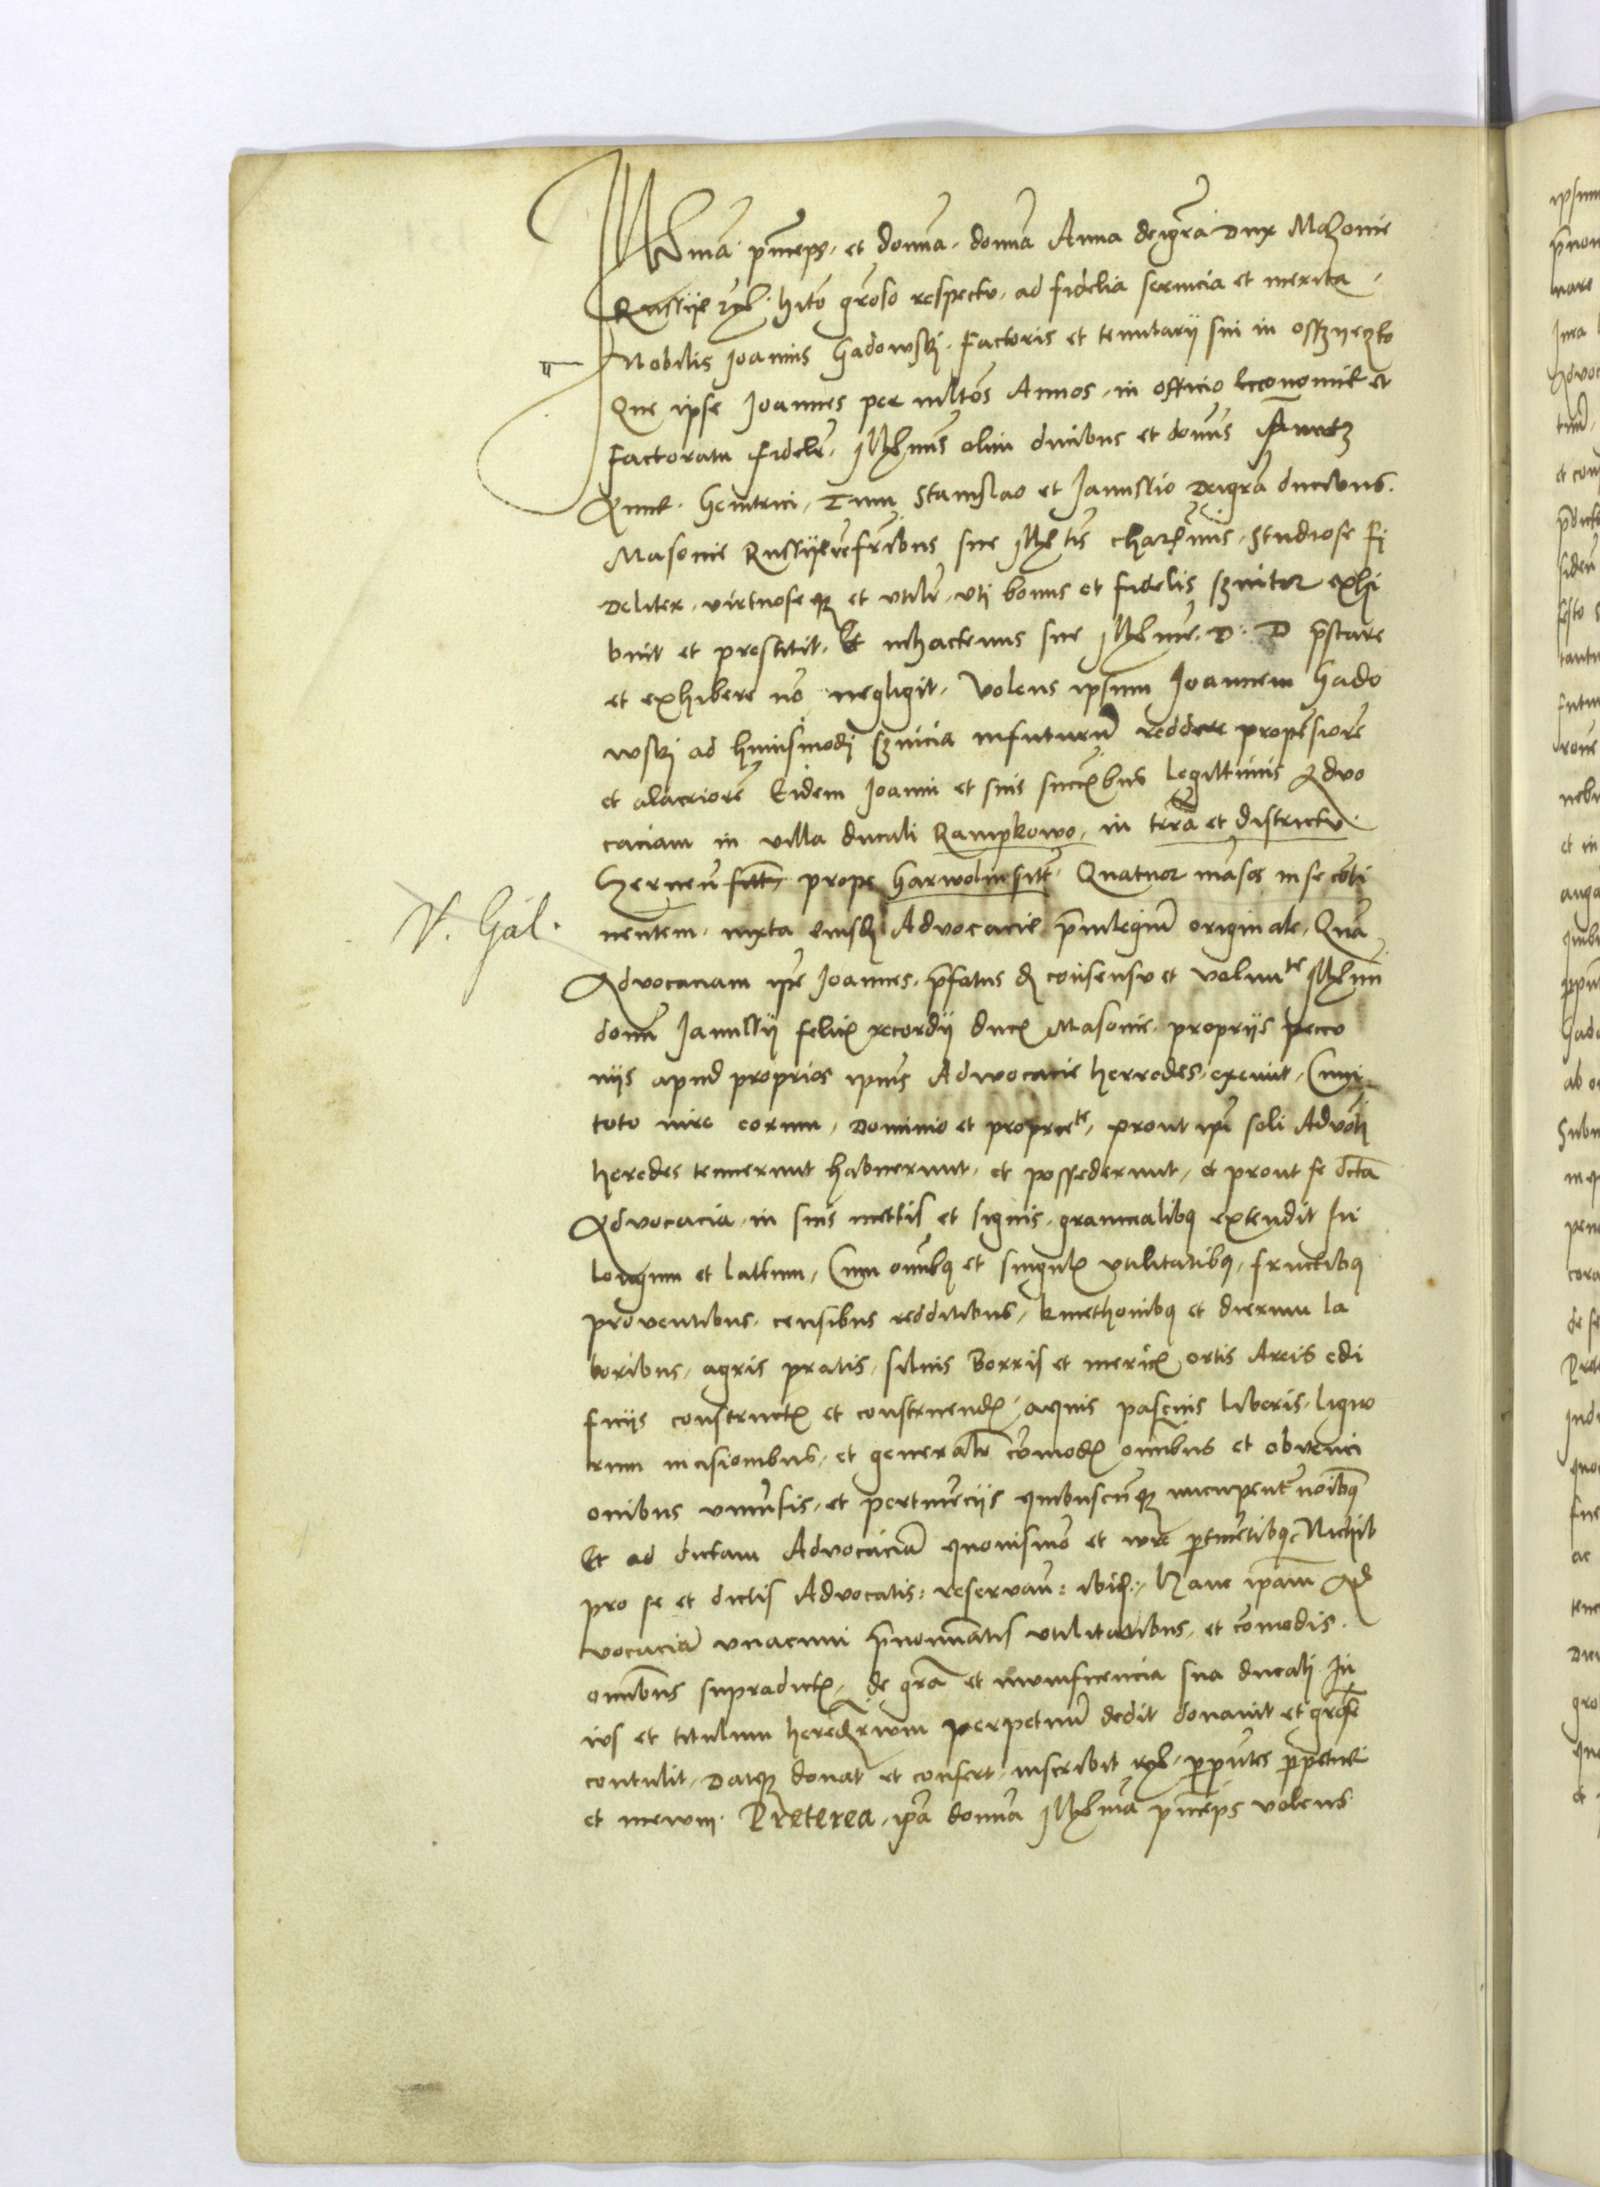 Illma princeps et domina domina Anna dei gra Dux Mazouie
Russije etc. hito groso respectu ad fidelia seruicia et merita
Nobilis Joannis Gadowskj factoris et tenutarij sui in
Que ipse Joannes per mltos Annos in officio economie et
factoratu fideli Illmis olim ducibus et domis
Anne Tum Stanislao et Janussio Dei gra ducibus
Masouie Russije fribus sue charmis studiose fi
deliter virtuoseq et vtilr vti bonus et fidelis exhi
buit et prestitit Et inhactenus sue Illme D D prstare
et exhibere no negligit Volens ipsum Joannem Gado
wskj ad huiusmodj infuturu reddere propensiore
et alacriore Eidem Joanni et suis succbus legittimis Advo
caciam in villa ducali Rampkowo in terra et districtu
Czernen prope Garwolin sitt Quatuor masos in se conti
V. Gal. nentem iuxta eiusdem Advocacie priuilegiu originale Qua
Advocaciam ipse Joannes prfatus de consensu et volunte Illmi
domi Janussij felic recordij ducis Masouie proprijs peccu
niis apud proprios ipius Advocacie herredes exemit Cum
toto iure eorum Dominio et propriete prout ipi soli Advoti
heredes tenuerunt habuerunt et possederunt et prout se dcta
Advocacia in suis mettis et signis granicialibq extendit in
longum et lattum Cum omibq et singulis vtilitatibq fructibq
prouentibus censibus redditibus kmethonibq et dierum la
boribus agris pratis siluis Borris et mericis ortis Areis edi
ficijs constructis et construendis aquis pascuis liberis ligno
rum incisionibus et generalr comodis omibus et obuenci
onibus vniusis et pertinecijs quibuscuq nucupent noibq
Et ad dictam Advocacia quouismo et iure prtinetibq Nichil
pro se et dictis Advocatis reservan ibidem Hanc ipam Ad
vocacia vnacum prnomiatis vtilitatibus et comodis
omibus supradictis de gra et munificencia sua ducali in
ius et titulum perpetuu dedit donauit et grose
contulit Datq donat et confert inscribit etc perpetue
et in ewum Preterea ipa domina Illma princeps volens